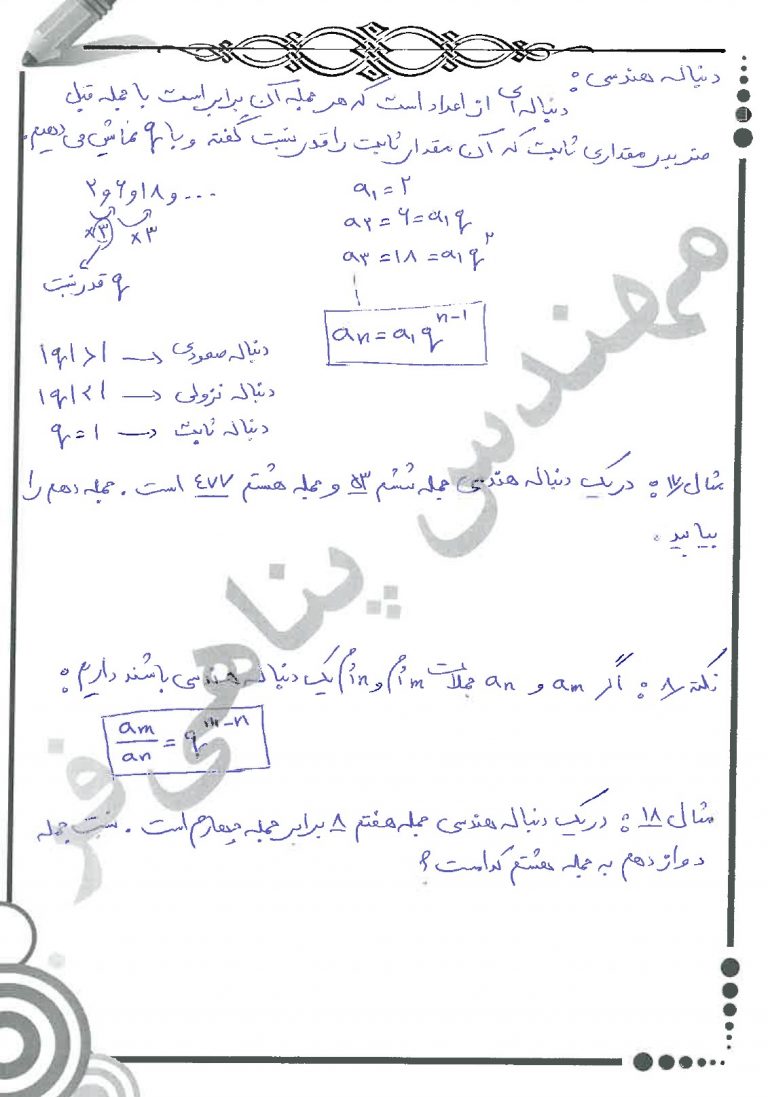 دنباله هندسی :
دنباله ای از اعداد است که هر جمله آن برابر است با جمله قبل
ضربدر مقداری ثابت که آن مقدار ثابت را قدر نسبت گفته و با q نمایش می دهیم.
۲ و ۶ و ۱۸ و ...
×۳ ×۳
q قدر نسبت
a₁ = ۲
a₂ = ۶ = a₁q
a₃ = ۱۸ = a₁q²
aₙ = a₁qⁿ⁻¹
دنباله صعودی → |q| > ۱
دنباله نزولی → |q| < ۱
دنباله ثابت → q = ۱
مثال ۱۷ : در یک دنباله هندسی جمله ششم ۵۳ و جمله هشتم ۴۷۷ است . جمله دهم را
بیابید .
نکته ۸ : اگر aₘ و aₙ جملات m اُم و n اُم یک دنباله هندسی باشند داریم :
aₘ/aₙ = qᵐ⁻ⁿ
مثال ۱۸ : در یک دنباله هندسی جمله هفتم ۸ برابر جمله چهارم است . نسبت جمله
دوازدهم به جمله هشتم کدامست ؟
مهندس پناهی فر